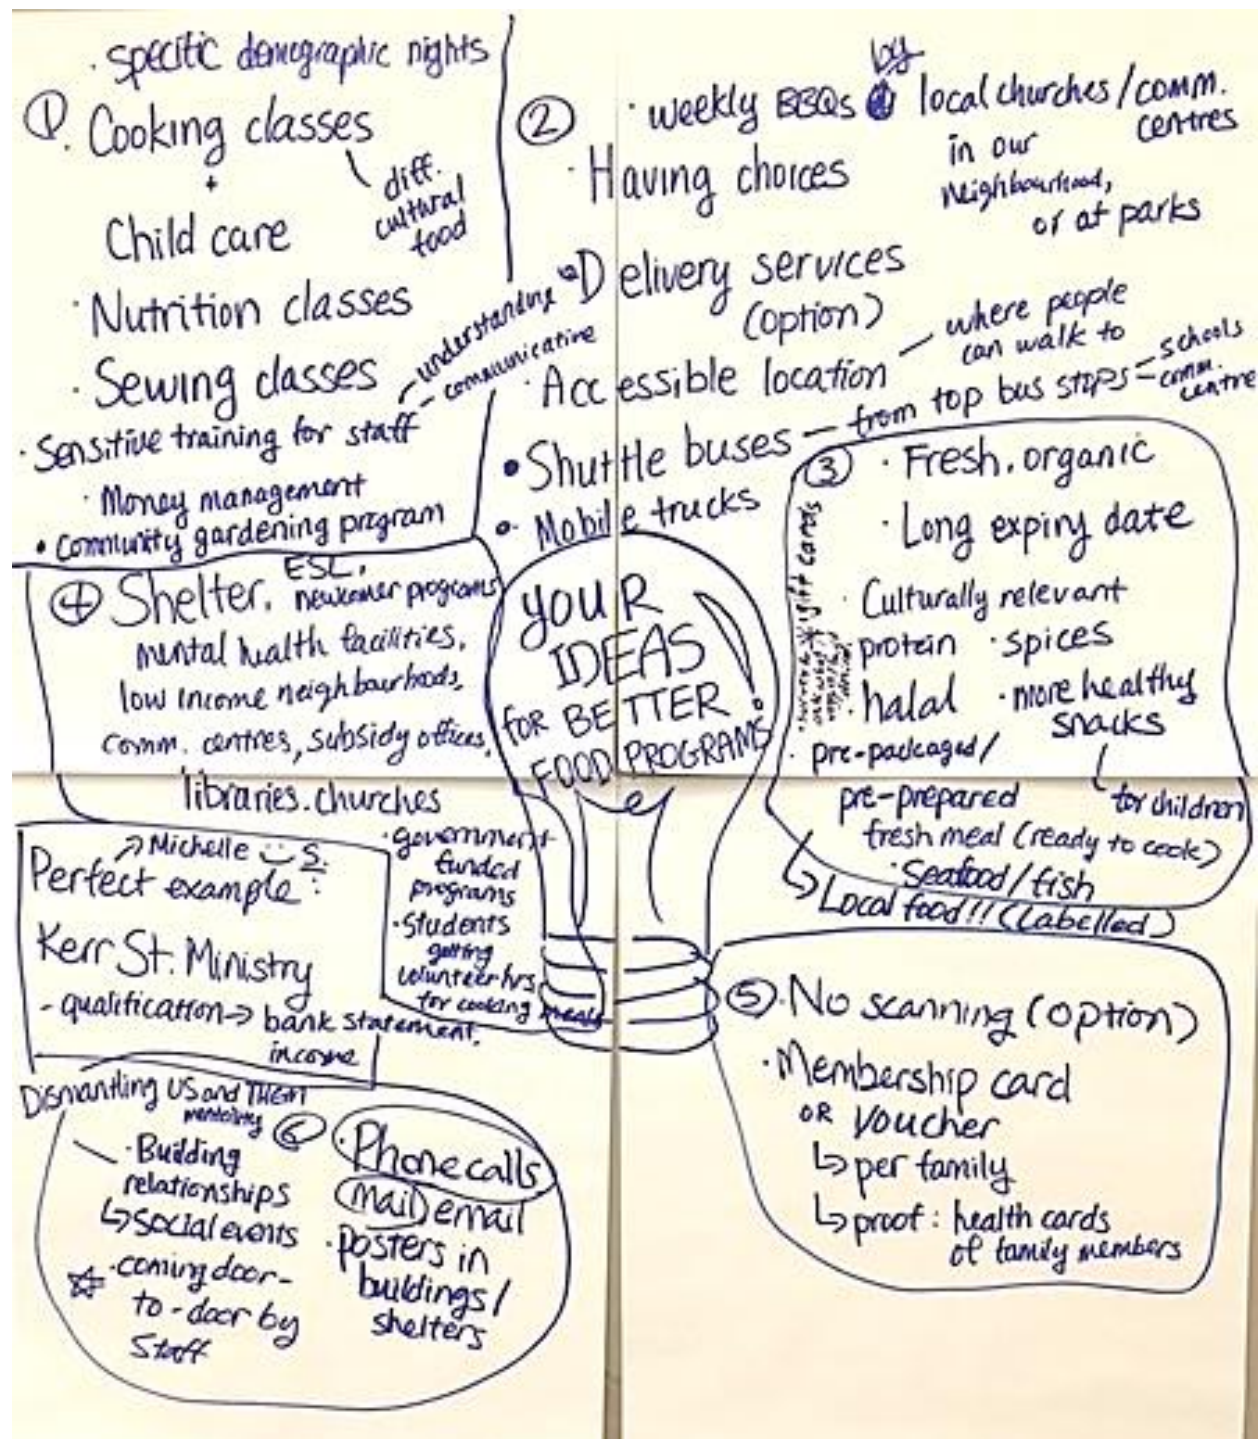 · specific demographic nights
① · Cooking classes
+
Child care
diff.
cultural
food
· Nutrition classes
· Sewing classes
· Sensitive training for staff
- understanding
- communicative
· Money management
· Community gardening program
②
· weekly BBQs by local churches/comm.
centres
in our
neighbourhood,
or at parks
· Having choices
· Delivery services
(option)
· Accessible location
- where people
can walk to
· Shuttle buses - from top bus stops - schools
- comm.
centre
· Mobile trucks
YOUR
IDEAS
FOR BETTER
FOOD PROGRAMS
③ · Fresh. organic
· Long expiry date
· Culturally relevant
· protein · spices
· halal · more healthy
snacks
for children
· pre-packaged/
pre-prepared
fresh meal (ready to cook)
· Seafood/fish
Local food!! (Labelled)
* gift cards
④ Shelter. ESL.
newcomer programs
mental health facilities,
low income neighbourhoods,
comm. centres, subsidy offices,
libraries. churches
· government
funded
programs
· Students
getting
volunteer hrs
for cooking meals
Michelle S.
Perfect example :
Kerr St. Ministry
- qualification → bank statement,
income
⑤ · No scanning (option)
· Membership card
OR Voucher
↳ per family
↳ proof : health cards
of family members
Dismantling US and THEM
mentality
· Building
relationships
↳ social events
☆ · coming door-
to-door by
Staff
⑥ · Phone calls
mail email
· posters in
buildings/
shelters